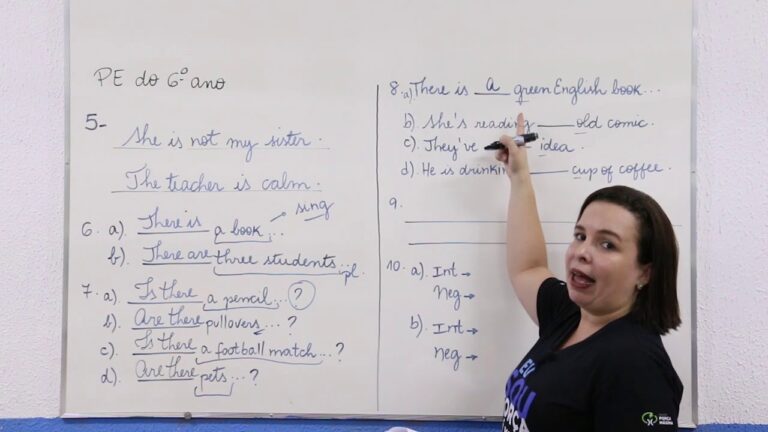 PE do 6º ano
5-
She is not my sister.
The teacher is calm.
sing
6. a). There is a book...
b). There are three students... pl.
7. a) Is there a pencil...?
b). Are there pullovers...?
c). Is there a football match...?
d). Are there pets...?
8. a) There is a green English book...
b) She's reading ____ old comic.
c). They've idea.
d). He is drinkin ____ cup of coffee.
9.
10. a). Int →
Neg →
b). Int →
Neg →
EU
SOU
FORÇA
MÁXIMA